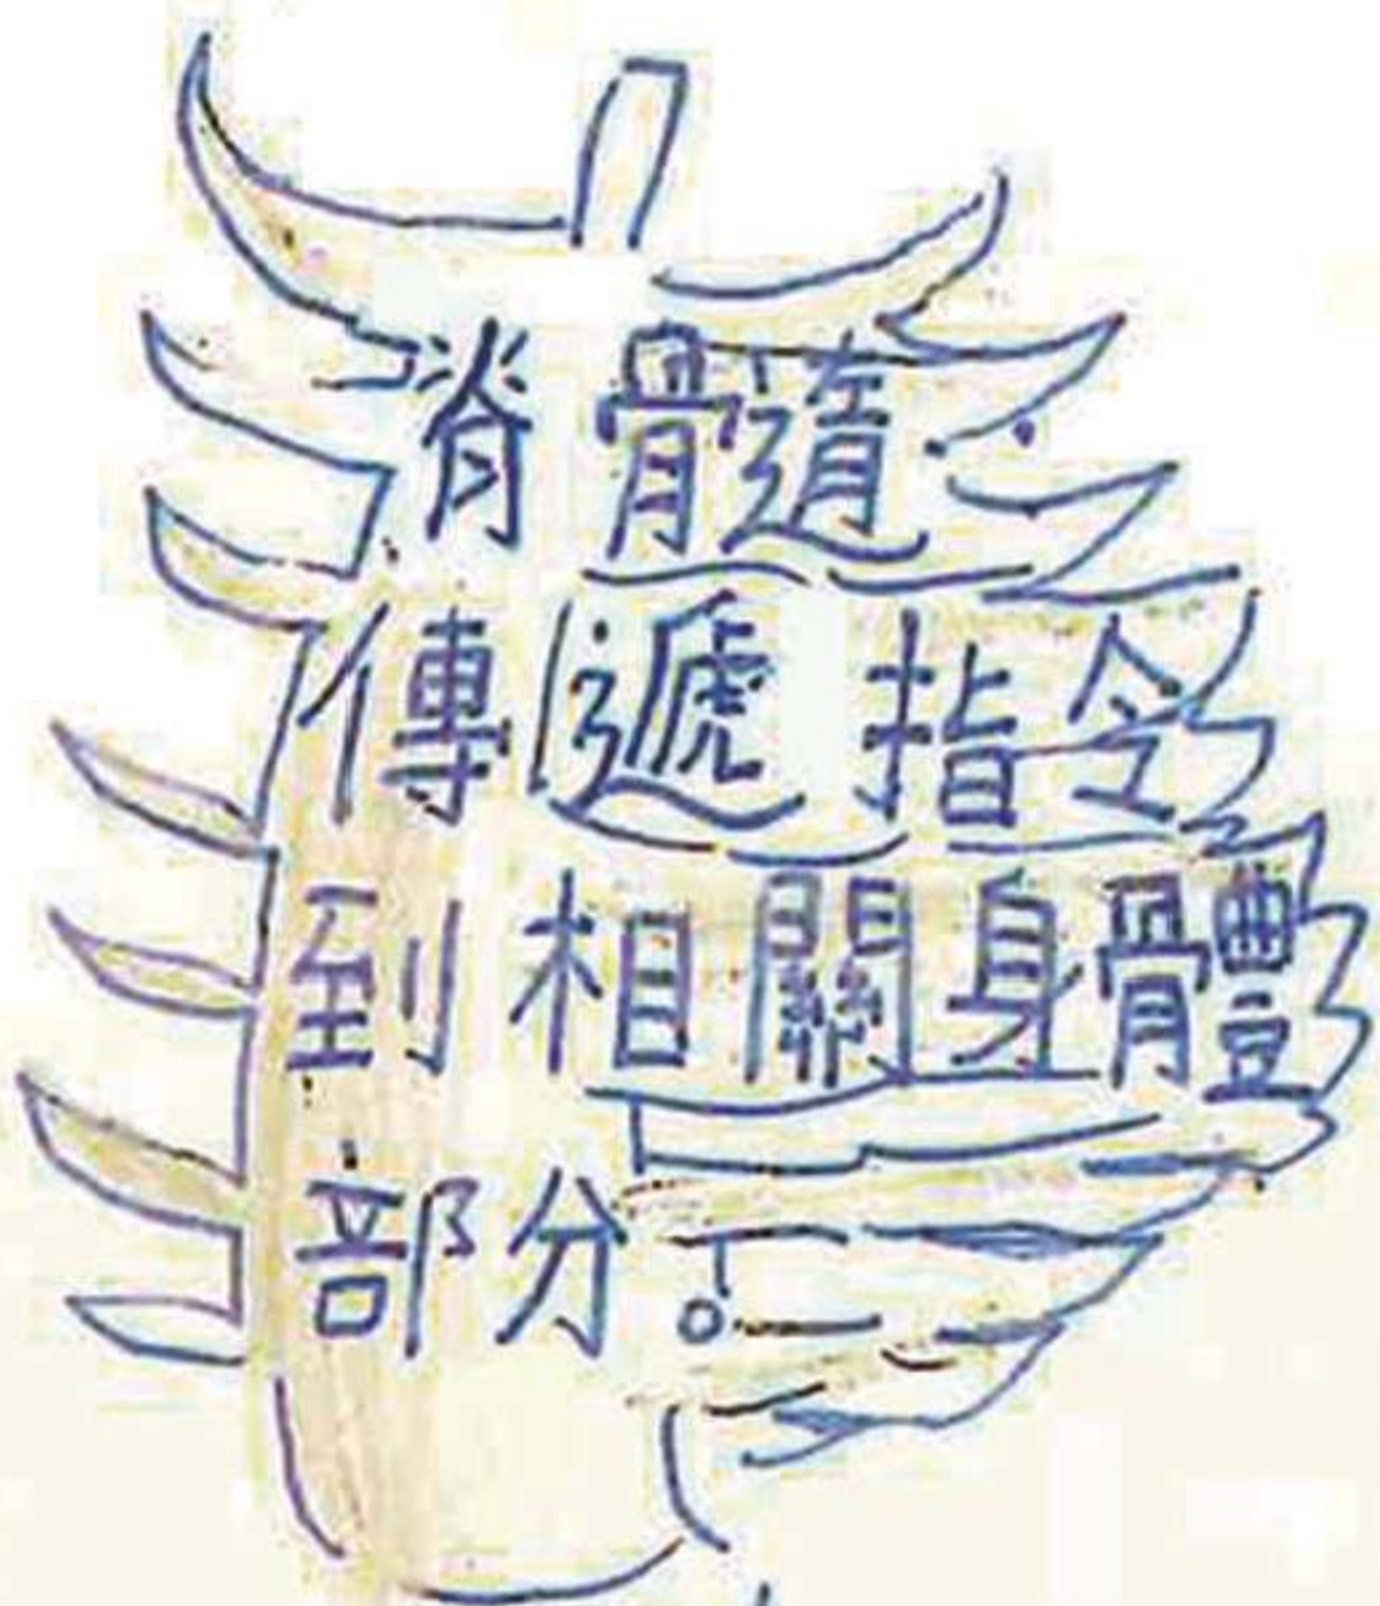 脊髓
傳遞指令
到相關身體
部分。